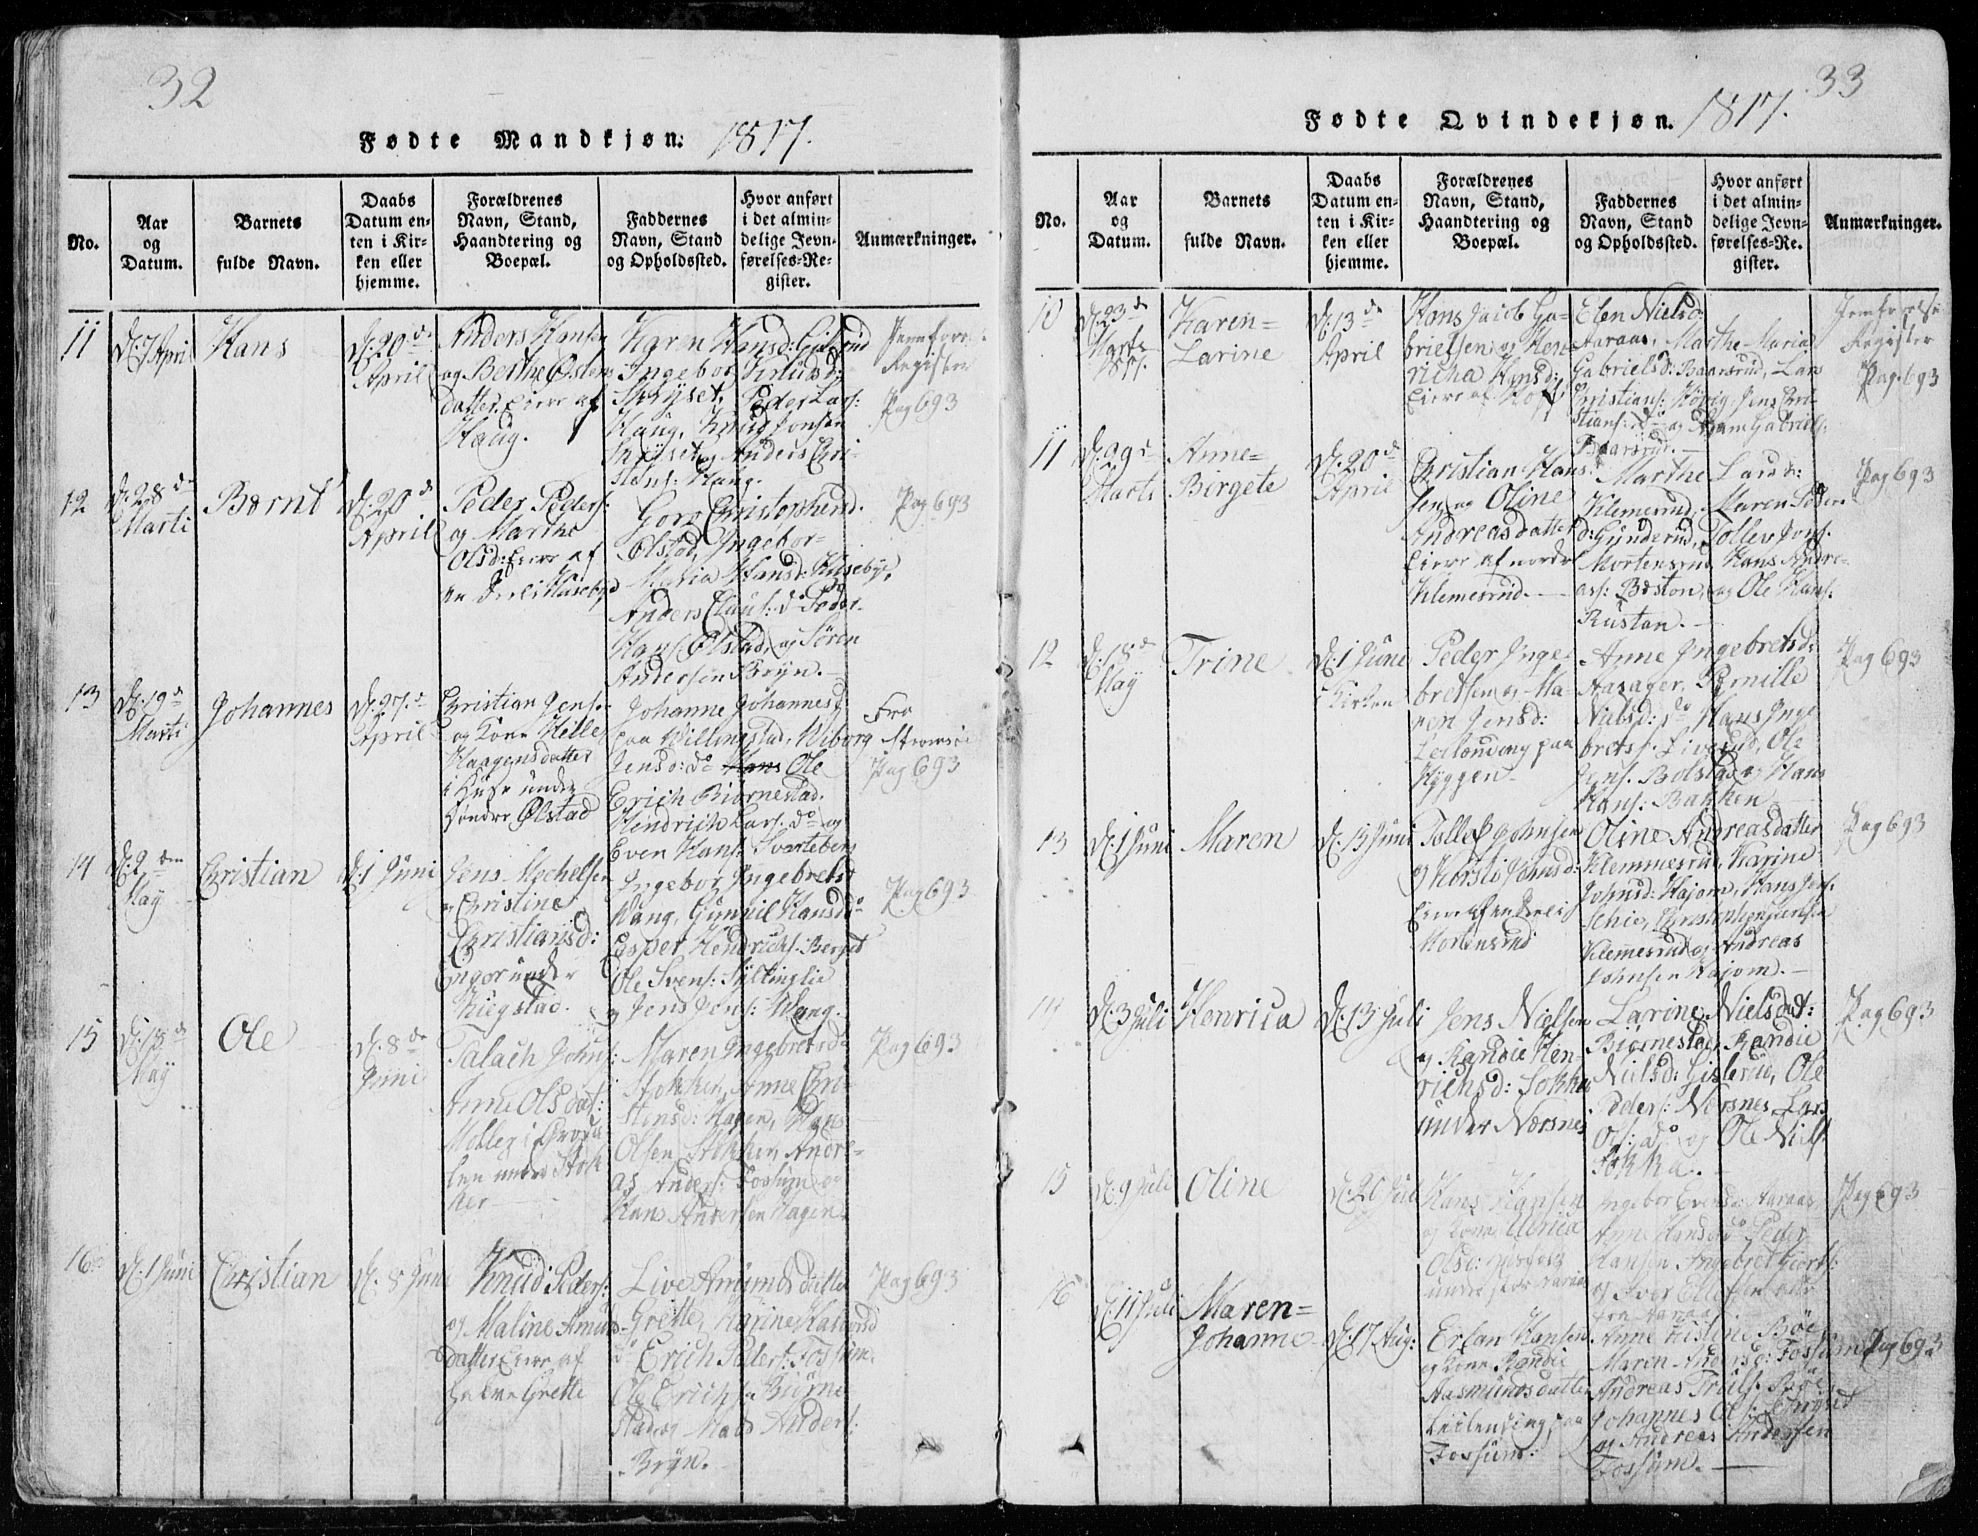 32
Fødte Mandkjøn: 1817.
No.
Aar
og
Datum.
Barnets
fulde Navn.
Daabs
Datum en-
ten i Kir-
ken eller
hjemme.
Forældrenes
Navn, Stand,
Haandtering og
Boepæl.
Faddernes
Navn, Stand
og Opholdssted.
Hvor anført
i det almin-
delige Jevn-
førelses-Re-
gister.
Anmærkninger.
11
D: 7 April
Hans
D: 20de
April
Anders Hansen
og Berthe Østens
datter Eiere af
Haug.
Karen Hansd:
Ingebor
Peder Lars:
Haug, Knud Jonsen
og Anders Chri-
stens: Haug.
Register
Pag 693
12
D: 28de
Marti
Bernt
D: 20de
April
Peder Peders:
og Marthe
Olsd: Eiere af
en Deel i Huseby
Goro Christophersd.
Ølstad, Ingebor-
Maria Hansd: Husebye,
Anders Claus: do Peder
Hans: Ølstad, og Søren
Andersen Bryn.
Pag 693
13
D: 19de
Marti
Johannes
D: 27de
April
Christian Jens:
og Kone Helle
Haagensdatter
i Huse under
Søndre Ølstad
Johanne Johannesd
paa Willingstad, Wiborg
Jensd: do Hans Ole
Erich Biørnestad.
Hendrich Lars. do og
Even Hans: Svarteberg
Fra
Pag 693
14
D: 2den
May
Christian
D: 1 Juni
Jens Mechelsen
og Christine
Christiansd:
under
Kiegstad.
Ingebor Ingebretsd
Wang, Gunnil Hansd do
Casper Hendrichs: Berget
Ole Svens:
og Jens Jens: Wang.
Pag 693
15
D: 18de
May
Ole
D: 8de
Juni
Talach Johns:
Anne Olsdat:
under Stok
ker
Maren Ingebretsd
Stokken, Anne Chri-
stensd: Hagen, Hans
Olsen Stokker, Andre-
as Anders: Fossum og
Hans Andersen Hagen.
Pag 693
16
D: 1 Juni
Christian
D: 8 Juni
Knud Peders:
og Maline Amund-
datter Eiere af
Grette
Live Amunds datter
Grette, Karine
do Erich Peders: Fossum.
Ole Erichs: Biørne
stad og Mads Anders:
Bryn.
Pag 693
33
Fødte Qvindekjøn. 1817.
No.
Aar
og
Datum.
Barnets
fulde Navn.
Daabs
Datum en-
ten i Kir-
ken eller
hjemme.
Forældrenes
Navn, Stand,
Haandtering og
Boepæl.
Faddernes
Navn, Stand
og Opholdssted.
Hvor anført
i det almin-
delige Jevn-
førelses-Re-
gister.
Anmærkninger.
10
D: 23de
Marts
1817.
Karen=
Larine
D: 13de
April
Hans Jacob Ga-
brielsen og Hen-
richa Hansd:
Eiere af Hoff
Elen Nielsd
Aaraas, Marthe Maria
Gabrielsd: Baarsrud, Lars
Christians: Høvig, Jens Chri-
stians: do og Abram Gabriels:
Baarsrud.
Jemførelse
Register
Pag. 693
11
D: 29de
Marts
Anne=
Birgete
D: 20de
April
Christian Hans
sen og Oline
Andreasdatter
Eiere af nordre
Klemesrud.
Marthe Larsd:
Klemesrud, Maren Peder
d: Gunderud, Tollev Jons:
Mortensrud Hans Andre-
as: Boston, og Ole Hans:
Rustan.
Pag 693
12
D: 18de
May
Trine
D: 1 June
Kirken
Peder Inge-
bretsen og Ma-
ren Jensd:
Leilænding paa
Hyggen
Anne Ingebretsd:
Aasager, Pernille
Nielsd: do Hans Inge
brets:, Ole
Jens: Bolstad og Hans
Hans: Bakken
Pag 693
13
D: 1 Juni
Maren
D: 15 Juni
Tollef Johnsen
og Korsti Johnsd:
Eiere af en Deel i
Mortensrud
Oline Andreasdatter
Klemmesrud, Karine
Johnsd: Hajom, Hans Jens:
Klemmesrud og Andreas
Johnsen Hajom.
Pag 693
14
D: 3 Juli
Henrica
D: 13 Juli
Jens Nielsen
og Randie Hen-
richsd: Sokka
under Nærsnes
Larine Nielsdat:
Biørnestad, Randie
Nielsd: Gislerud, Ole
Peders: Nersnes, Lars
Ols: do og Ole Niels:
Sokka.
Pag 693
15
D: 9 Juli
Oline
D: 20 Juli
Hans Hansen
og Kone Ulrica
Olsd:
under
Ingebor Evensd. Aaraas
Anne Hansd do Peder
Hansen Ingebret
og Iver Ellefsen alle
fra Aaraas
Pag 693
16
D: 11 Juli
Maren=
Johanne
D: 17 Aug:
Erland Hansen
og Kone Randie
Aasmundsdatter
Leilending paa
Fossum:
Anne Kistine Bøe
Maren Andersd: Fossum
Andreas Truls: Bøe
Johannes Ols:
og Andreas Andersen
Fossum.
Pag 693